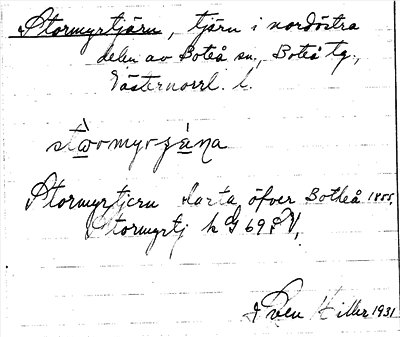 Stormyrtjärn, tjärn i nordöstra
delen av Boteå sn., Boteå tg.,
Västernorrl. l.
Stormyrtjern karta öfver Botheå 1855,
Stormyrtj k G 69
Sven Hiller 1931